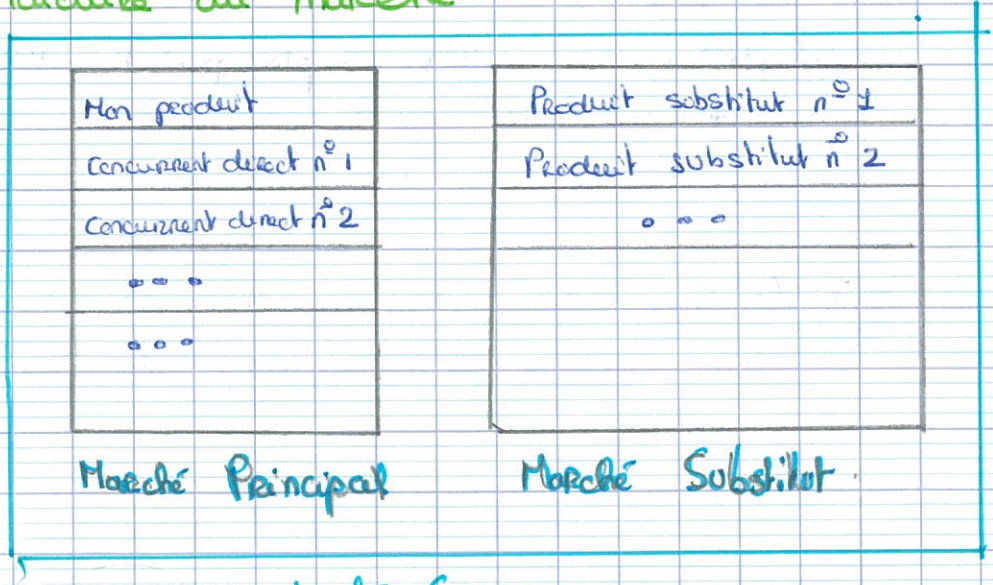 du marché
Mon produit
Concurrent direct n° 1
Concurrent direct n° 2
...
...
Marché Principal
Produit substitut n° 1
Produit substitut n° 2
...
Marché Substitut.